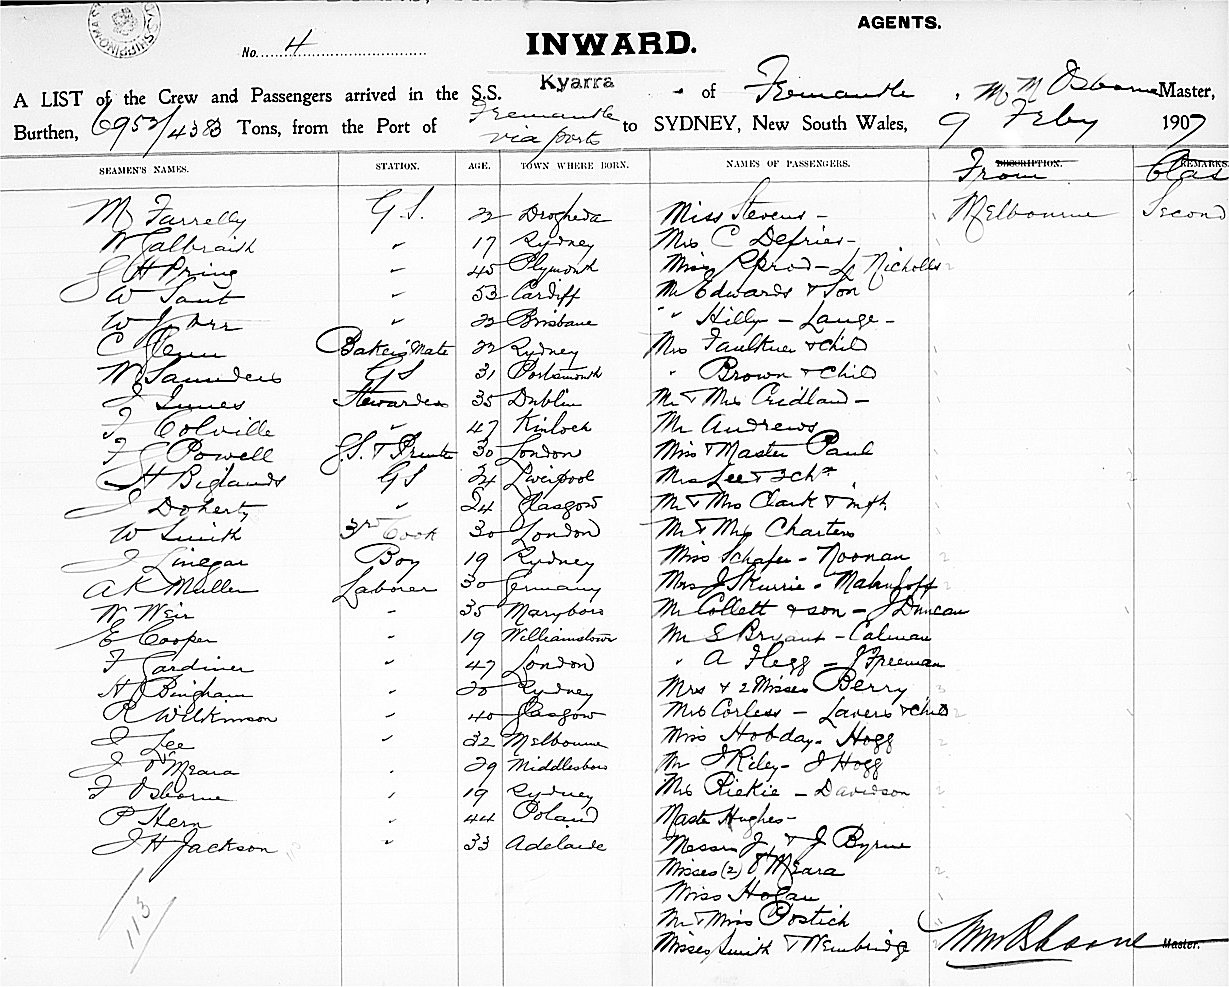 AGENTS.
No. 4
INWARD.
Kyarra
A LIST of the Crew and Passengers arrived in the S.S. " of Fremantle, Osborne Master,
Burthen, 6953/4383 Tons, from the Port of Fremantle via ports to SYDNEY, New South Wales, 9 Feby 1907
SEAMEN'S NAMES. STATION. AGE. TOWN WHERE BORN. NAMES OF PASSENGERS. DESCRIPTION. From REMARKS. Clas
M Farrelly G.S. 22 Drogheda Miss Stevens - Melbourne Second
W Galbraith " 17 Sydney Mrs C Defries -
H Pring " 45 Plymouth Nicholls
W " 53 Cardiff Mr Edwards & Son
W J Orr " 22 Brisbane " " Hilly - Lange -
C Glenn Baker's Mate 22 Sydney Mrs Faulkner & child
W Saunders GS 31 Portsmouth " Brown & child
J Innes Stewardess 35 Dublin Mr & Mrs Cridland -
F Colville " 47 Kinloch Mr Andrews
F J Powell G.S. & Printer 30 London Miss & Master Paul
H Biglands GS 24 Liverpool Mrs Lee & 2 ch
J Doherty " 24 Glasgow Mr & Mrs Clark & inft
W Smith 3rd Cook 30 London Mr & Mrs Charters
J Linegar Boy 19 Sydney Miss Schafer - Noonan 2
A K Muller Laborer 30 Germany Mrs J Skurrie -
W Weir " 35 Maryboro Mr Collett & son - J Duncan
E Cooper " 19 Williamstown Mr S Bryant - Calman
F Gardiner " 47 London " A Flegg - J Freeman
H Bingham " 20 Sydney Mrs & 2 Misses Berry 3
R Wilkinson " 40 Glasgow Mrs Corless - Lavers & child 2
J Lee " 32 Melbourne Miss Hobday - Hogg 2
J O'Meara " 29 Middlesboro Mr J Riley - J Hogg
F Osborne " 19 Sydney Mrs Rickie - Davidson 2
P Hern " 44 Poland Master Hughes -
J H Jackson " 33 Adelaide Messrs J & J Byrne
Misses (2) O'Meara 2
Miss Hogan
113
Mr & Miss Postich
Misses Smith & Wembridge Master.